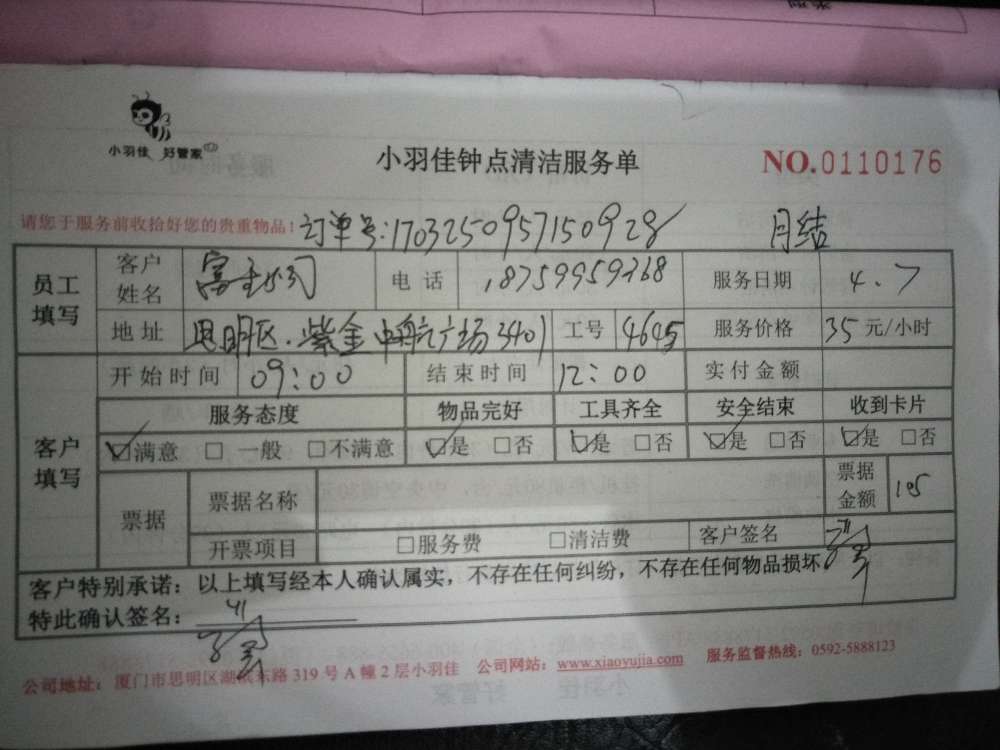 类型
小羽佳 好管家
小羽佳钟点清洁服务单
NO.0110176
请您于服务前收拾好您的贵重物品!
订单号:17032509571509 28
月结
员工填写 客户姓名 电话 18759959768 服务日期 4.7
地址 思明区.紫金中航广场3401 工号 4645 服务价格 35元/小时
开始时间 09:00 结束时间 12:00 实付金额
客户填写 服务态度 物品完好 工具齐全 安全结束 收到卡片
☑满意 □一般 □不满意 ☑是 □否 ☑是 □否 ☑是 □否 ☑是 □否
票据 票据名称 票据金额 105
开票项目 □服务费 □清洁费 客户签名
客户特别承诺:以上填写经本人确认属实,不存在任何纠纷,不存在任何物品损坏
特此确认签名:
公司地址:厦门市思明区湖滨东路319号A幢2层小羽佳 公司网站:www.xiaoyujia.com 服务监督热线:0592-5888123